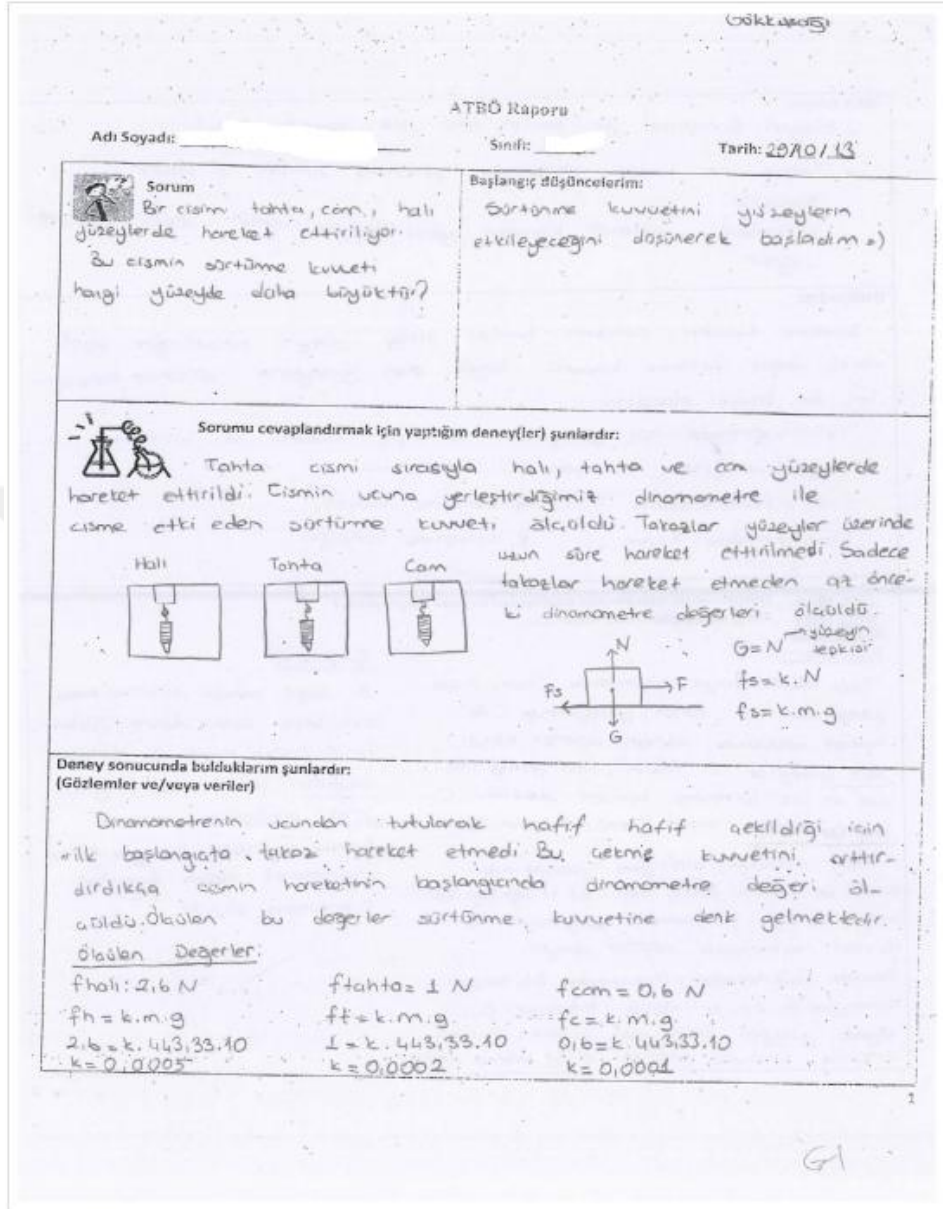 Gökkuşağı
ATBÖ Raporu
Adı Soyadı:
Sınıfı:
Tarih: 29/10/13
Sorum
Bir cisim tahta, cam, halı
yüzeylerde hareket ettiriliyor.
Bu cismin sürtünme kuvveti
hangi yüzeyde daha büyüktür?
Başlangıç düşüncelerim:
Sürtünme kuvvetini yüzeylerin
etkileyeceğini düşünerek başladım =)
Sorumu cevaplandırmak için yaptığım deney(ler) şunlardır:
Tahta cismi sırasıyla halı, tahta ve cam yüzeylerde
hareket ettirildi. Cismin ucuna yerleştirdiğimiz dinamometre ile
cisme etki eden sürtünme kuvveti ölçüldü. Takozlar yüzeyler üzerinde
uzun süre hareket ettirilmedi. Sadece
takozlar hareket etmeden az önce-
ki dinamometre değerleri ölçüldü.
Halı Tahta Cam
G=N yüzeyin
tepkisi
fs=k.N
fs=k.m.g
N
Fs F
G
Deney sonucunda bulduklarım şunlardır:
(Gözlemler ve/veya veriler)
Dinamometrenin ucundan tutularak hafif hafif çekildiği için
ilk başlangıçta takoz hareket etmedi. Bu çekme kuvvetini arttır-
dırdıkça cismin hareketinin başlangıcında dinamometre değeri öl-
çüldü. Ölçülen bu değerler sürtünme kuvvetine denk gelmektedir.
Ölçülen Değerler:
fhalı: 2,6 N ftahta= 1 N fcam= 0,6 N
fh=k.m.g ft=k.m.g fc=k.m.g
2,6=k.443,33.10 1=k.443,33.10 0,6=k.443,33.10
k=0,0005 k=0,0002 k=0,0001
1
G1